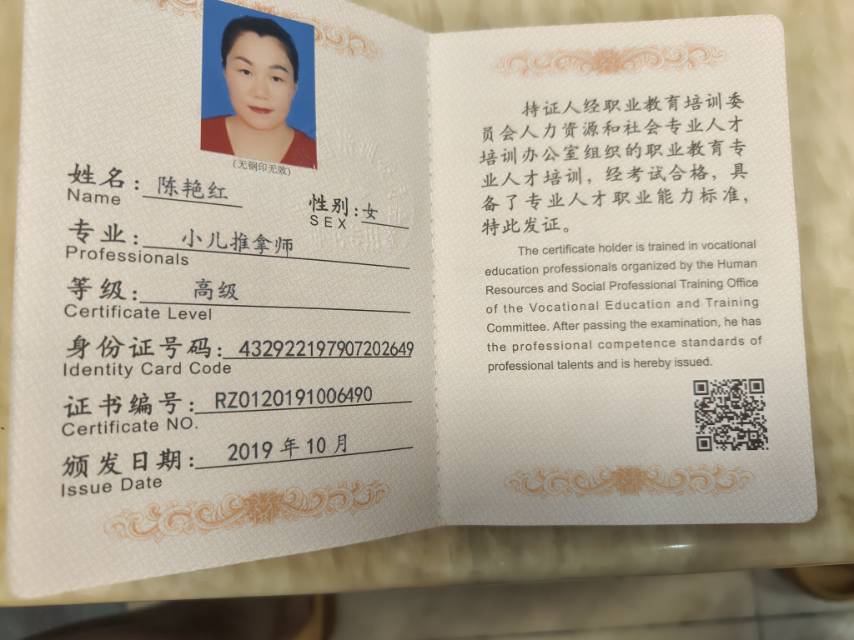 (无钢印无效)
姓名: 陈艳红
Name
性别: 女
SEX
专业: 小儿推拿师
Professionals
等级: 高级
Certificate Level
身份证号码: 432922197907202649
Identity Card Code
证书编号: RZ0120191006490
Certificate NO.
颁发日期: 2019 年 10 月
Issue Date
持证人经职业教育培训委
员会人力资源和社会专业人才
培训办公室组织的职业教育专
业人才培训，经考试合格，具
备了专业人才职业能力标准，
特此发证。
The certificate holder is trained in vocational
education professionals organized by the Human
Resources and Social Professional Training Office
of the Vocational Education and Training
Committee. After passing the examination, he has
the professional competence standards of
professional talents and is hereby issued.